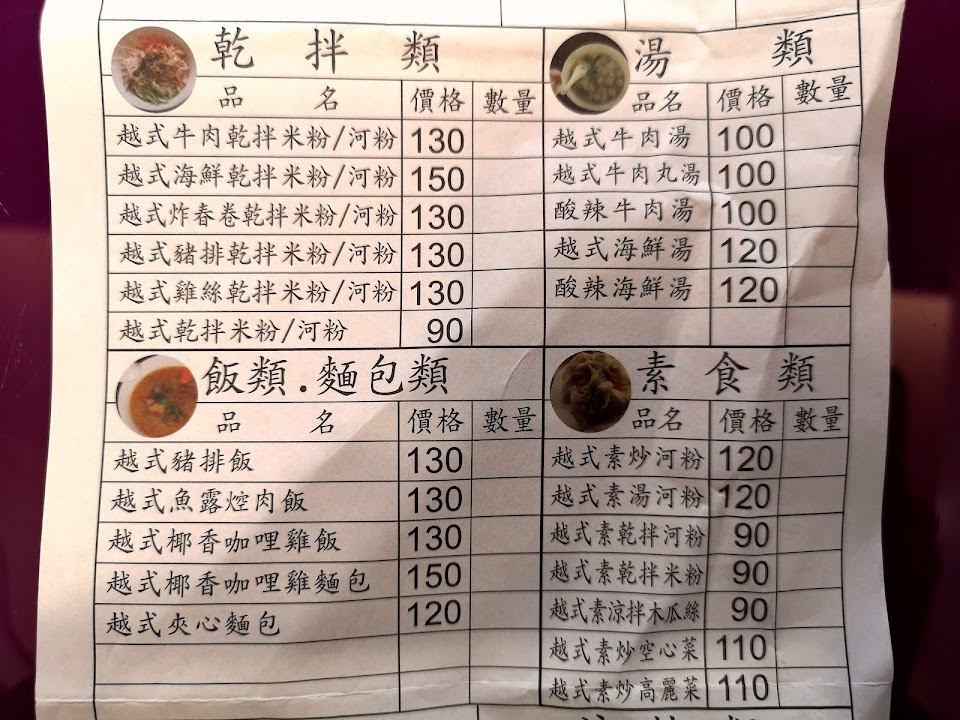 乾拌類
品名 價格 數量
越式牛肉乾拌米粉/河粉 130
越式海鮮乾拌米粉/河粉 150
越式炸春卷乾拌米粉/河粉 130
越式豬排乾拌米粉/河粉 130
越式雞絲乾拌米粉/河粉 130
越式乾拌米粉/河粉 90
湯類
品名 價格 數量
越式牛肉湯 100
越式牛肉丸湯 100
酸辣牛肉湯 100
越式海鮮湯 120
酸辣海鮮湯 120
飯類.麵包類
品名 價格 數量
越式豬排飯 130
越式魚露焢肉飯 130
越式椰香咖哩雞飯 130
越式椰香咖哩雞麵包 150
越式夾心麵包 120
素食類
品名 價格 數量
越式素炒河粉 120
越式素湯河粉 120
越式素乾拌河粉 90
越式素乾拌米粉 90
越式素涼拌木瓜絲 90
越式素炒空心菜 110
越式素炒高麗菜 110